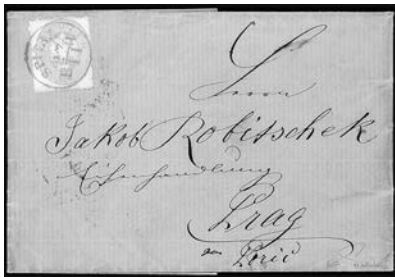 Herrn
Jakob Robitschek
Eisenhandlung
Prag
Porič